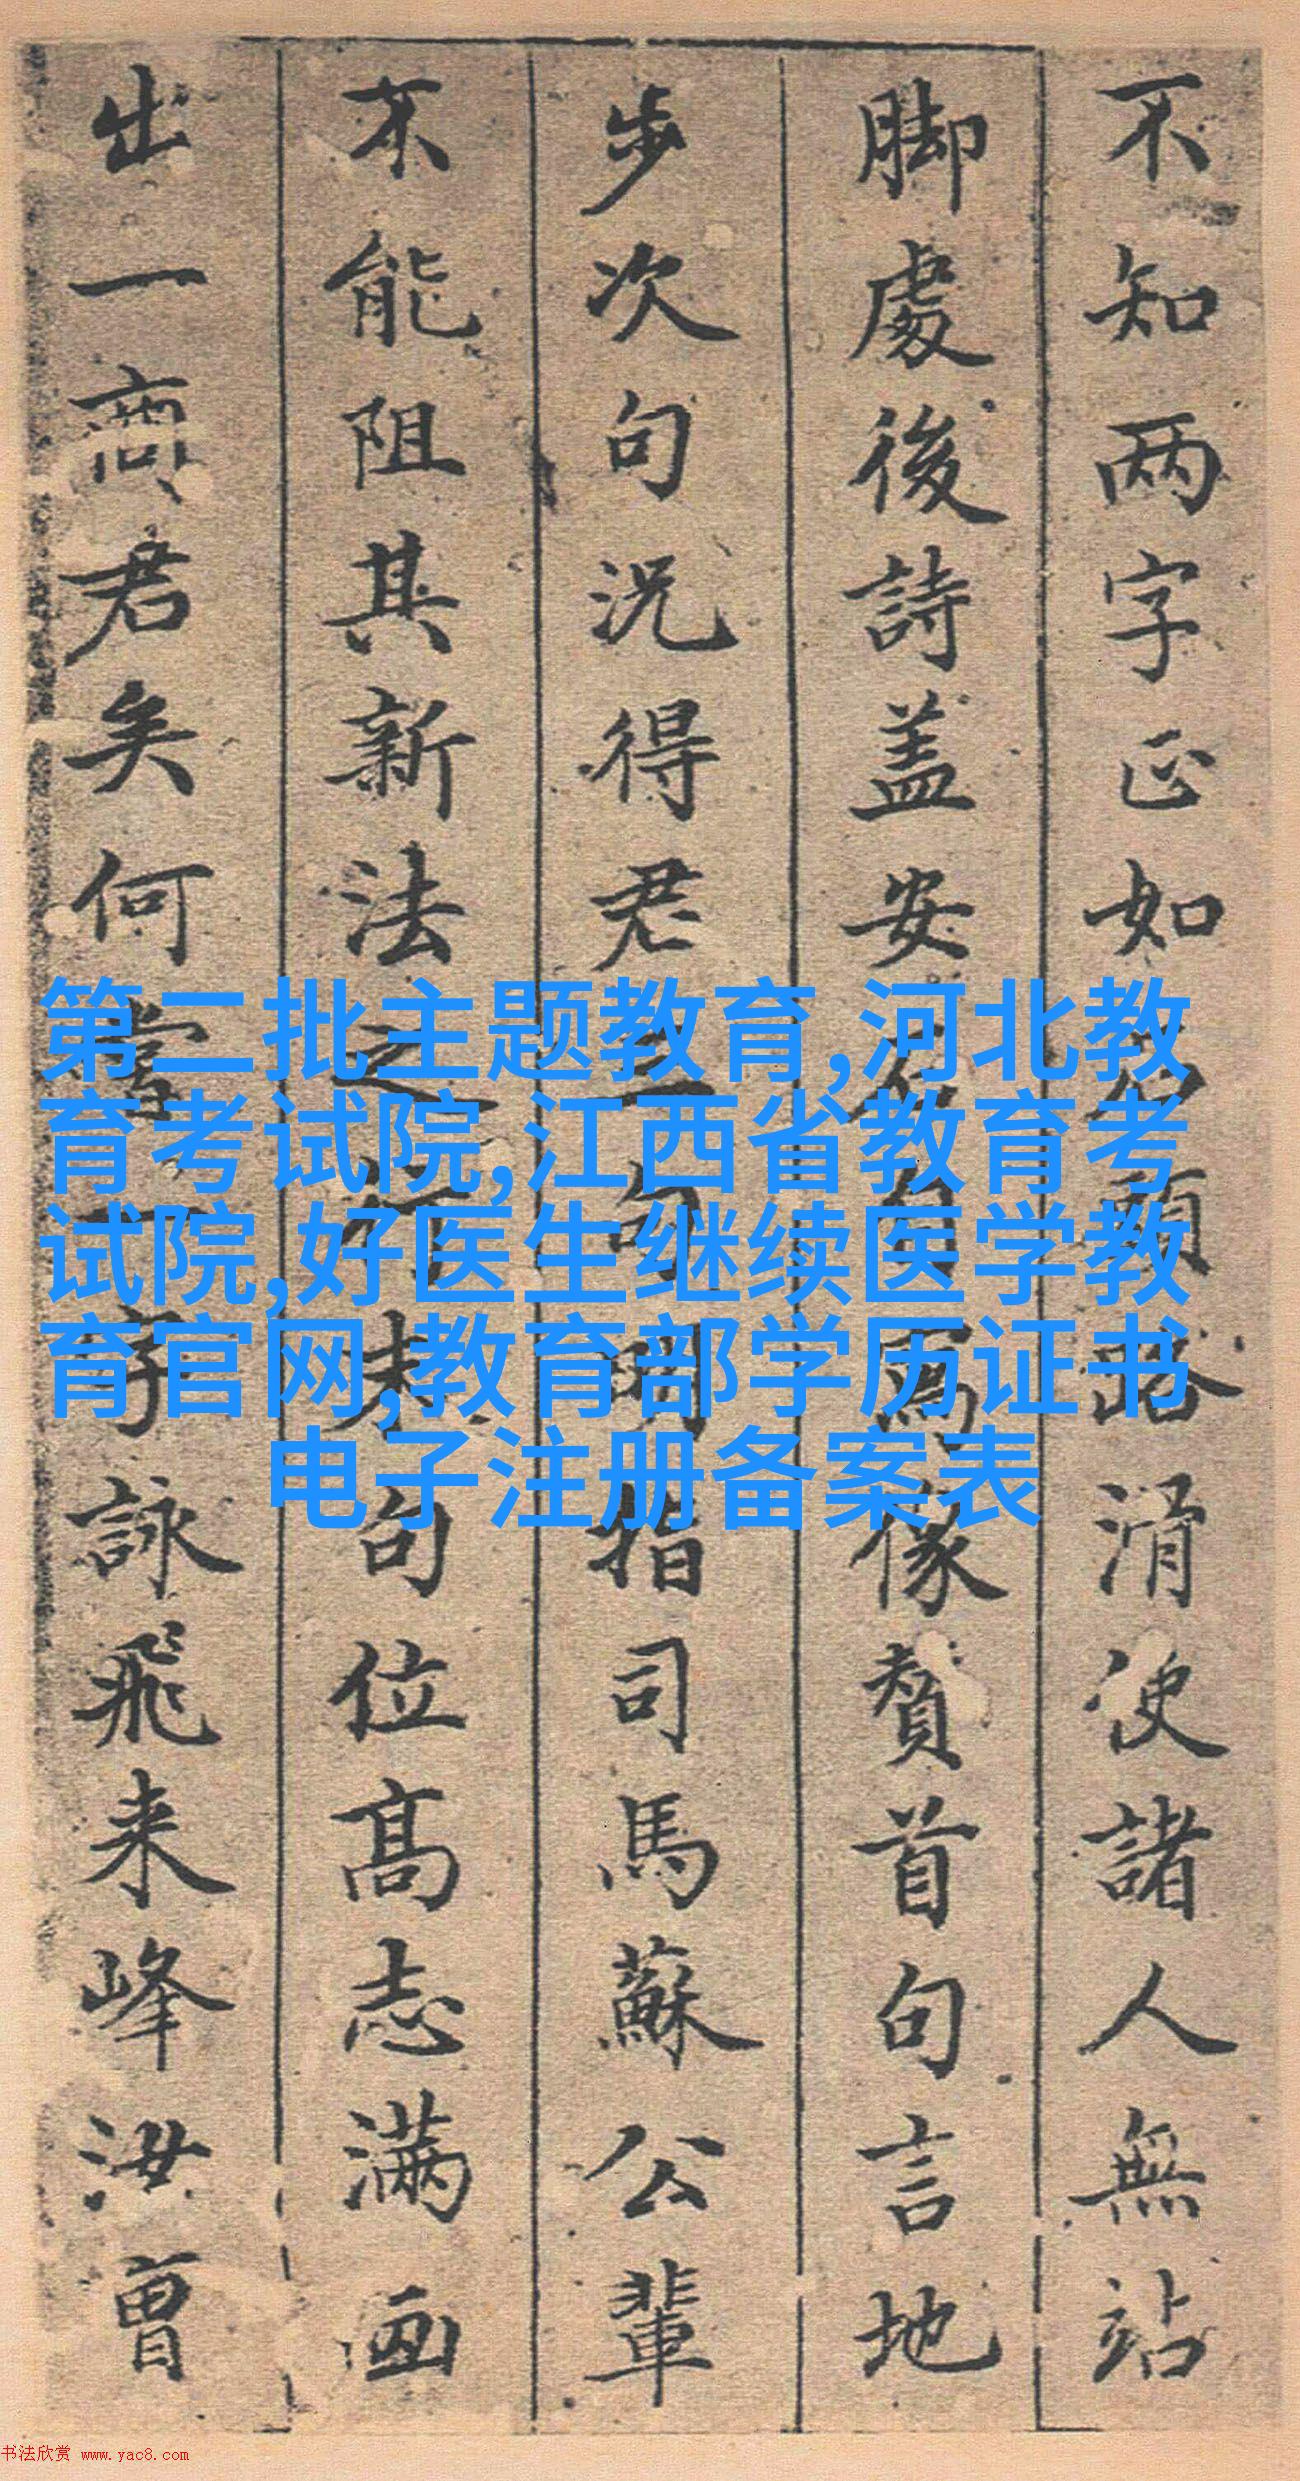 不知两字正如石頭路滑使諸人無站
脚處後詩盖安石自寫像贊首句言地
步次句况得君三句明指司馬蘇公輩
不能阻其新法之行末句位髙志满画
出一商君矣何嘗一字詠飛来峰汝曾
第二批主题教育,河北教
育考试院,江西省教育考
试院,好医生继续医学教
育官网,教育部学历证书
电子注册备案表
书法欣赏 www.yac8.com